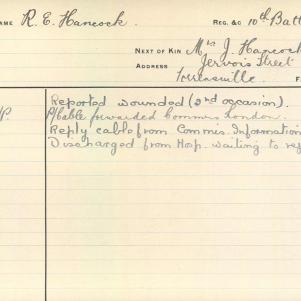 NAME R. E. Hancock. REG. &C 10th Batt
NEXT OF KIN Mrs J. Hancock
ADDRESS Jervois Street
Torrensville.
Reported wounded (2nd occasion).
Cable forwarded Commis London.
Reply cable from Commis. Information
Discharged from Hosp. waiting to